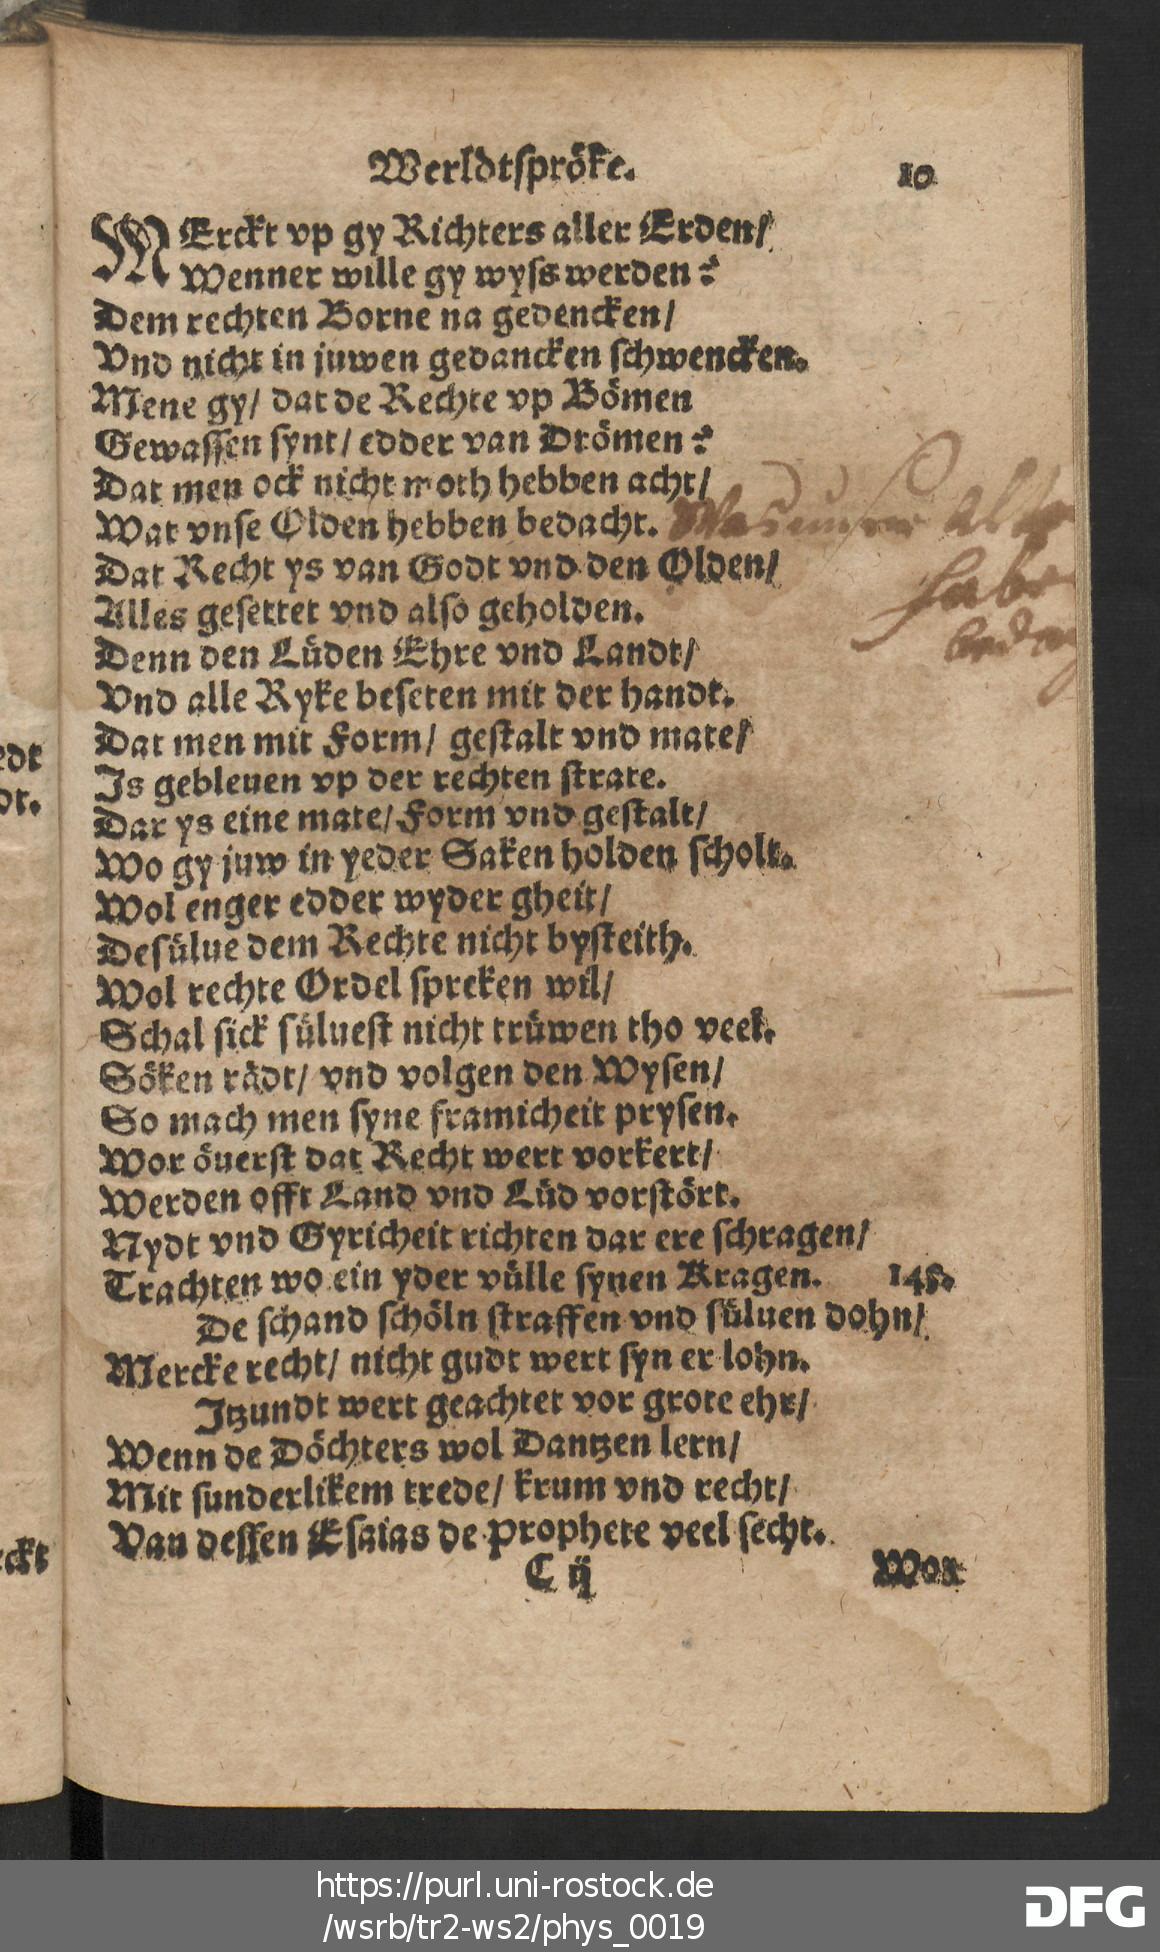 Werldtspröke.
10
MErckt vp gy Richters aller Erden/
Wenner wille gy wyss werden?
Dem rechten Borne na gedencken/
Vnd nicht in juwen gedancken schwencken.
Mene gy/ dat de Rechte vp Bömen
Gewassen synt/ edder van Drömen?
Dat men ock nicht moth hebben acht/
Wat vnse Olden hebben bedacht.
Was unsere Alte
habe
Dat Recht ys van Godt vnd den Olden/
Alles gesettet vnd also geholden.
Denn den Lüden Ehre vnd Landt/
Vnd alle Ryke beseten mit der handt.
Dat men mit Form/ gestalt vnd mate/
Is gebleuen vp der rechten strate.
Dar ys eine mate/ Form vnd gestalt/
Wo gy juw in yeder Saken holden scholt.
Wol enger edder wyder gheit/
Desülue dem Rechte nicht bysteith.
Wol rechte Ordel spreken wil/
Schal sick süluest nicht trüwen tho veel.
Söken rädt/ vnd volgen den Wysen/
So mach men syne framicheit prysen.
Wor öuerst dat Recht wert vorkert/
Werden offt Land vnd Lüd vorstört.
Nydt vnd Gyricheit richten dar ere schragen/
Trachten wo ein yder vülle synen Kragen. 145.
De schand schöln straffen vnd süluen dohn/
Mercke recht/ nicht gudt wert syn er lohn.
Itzundt wert geachtet vor grote ehr/
Wenn de Döchters wol Dantzen lern/
Mit sunderlikem trede/ krum vnd recht/
Van dessen Esaias de Prophete veel secht.
C ij
Wor
edt
dt.
eckt
https://purl.uni-rostock.de
/wsrb/tr2-ws2/phys_0019
DFG